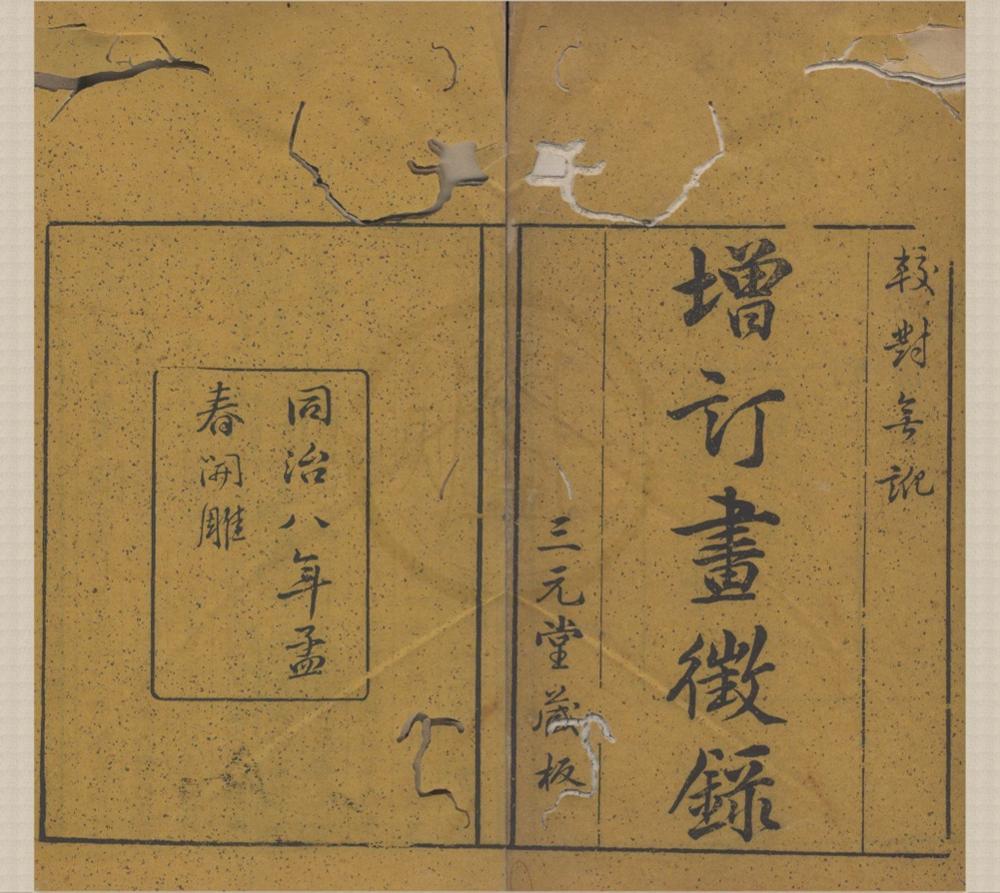 較對無訛
增訂畫徵錄
三元堂藏板
同治八年孟
春開雕